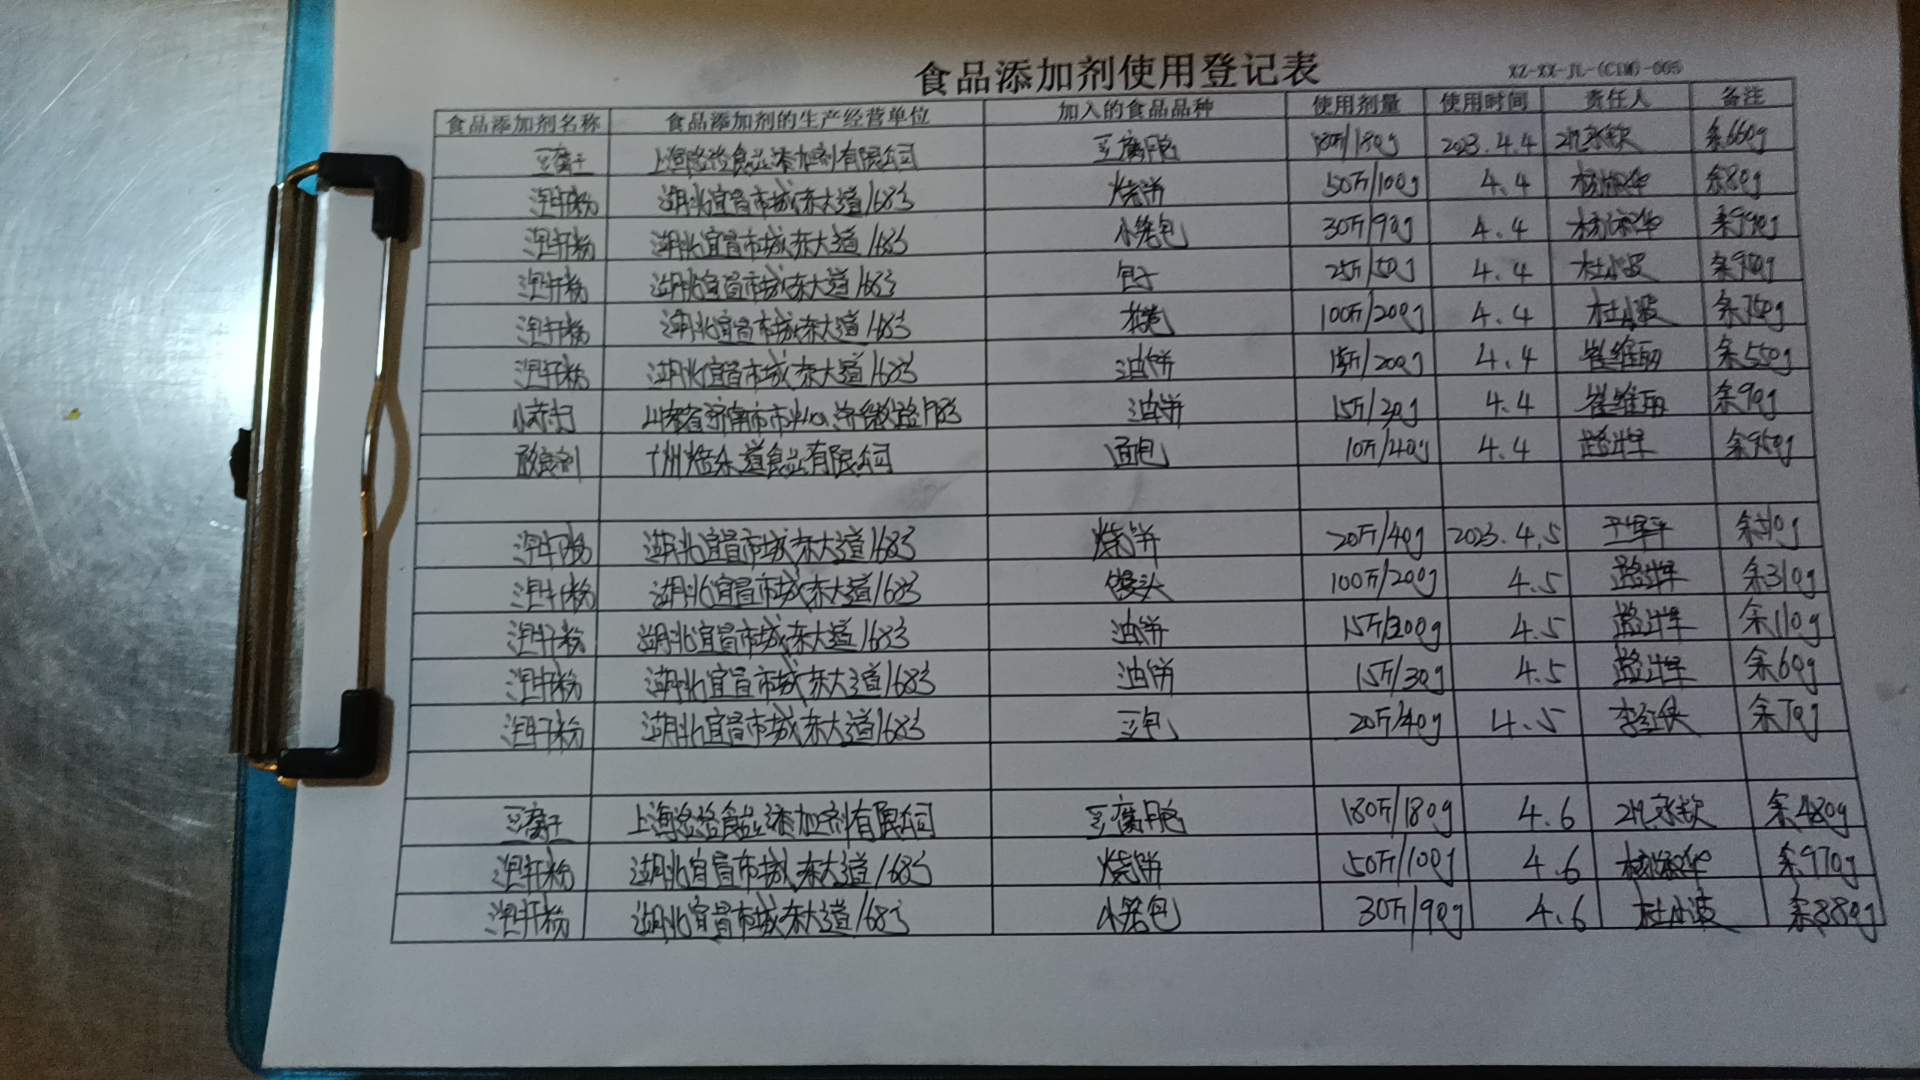 食品添加剂使用登记表 XZ-XX-JL-(CDM)-005
食品添加剂名称 食品添加剂的生产经营单位 加入的食品品种 使用剂量 使用时间 责任人 备注
上海 食品添加剂有限公司 豆腐脑 /180g 2023.4.4 余660g
泡打粉 湖北宜昌市城东大道168号 烧饼 50斤/100g 4.4 余80g
泡打粉 湖北宜昌市城东大道168号 小笼包 30斤/90g 4.4 余990g
泡打粉 湖北宜昌市城东大道168号 包子 25斤/50g 4.4 杜小波
泡打粉 湖北宜昌市城东大道168号 100斤/200g 4.4 杜小波 余750g
泡打粉 湖北宜昌市城东大道168号 油饼 15斤/200g 4.4 崔维丽 余550g
山东省济南市 油饼 15斤/30g 4.4 崔维丽 余90g
食品有限公司 面包 10斤/40g 4.4 余950g
泡打粉 湖北宜昌市城东大道168号 烧饼 20斤/40g 2023.4.5
泡打粉 湖北宜昌市城东大道168号 馒头 100斤/200g 4.5 余310g
泡打粉 湖北宜昌市城东大道168号 油饼 15斤/200g 4.5 余110g
泡打粉 湖北宜昌市城东大道168号 油饼 15斤/30g 4.5 余60g
泡打粉 湖北宜昌市城东大道168号 豆包 20斤/40g 4.5 李红侠 余70g
上海 食品添加剂有限公司 豆腐脑 180斤/180g 4.6 余480g
泡打粉 湖北宜昌市城东大道168号 烧饼 50斤/100g 4.6 余970g
泡打粉 湖北宜昌市城东大道168号 小笼包 30斤/90g 4.6 杜小波 余880g